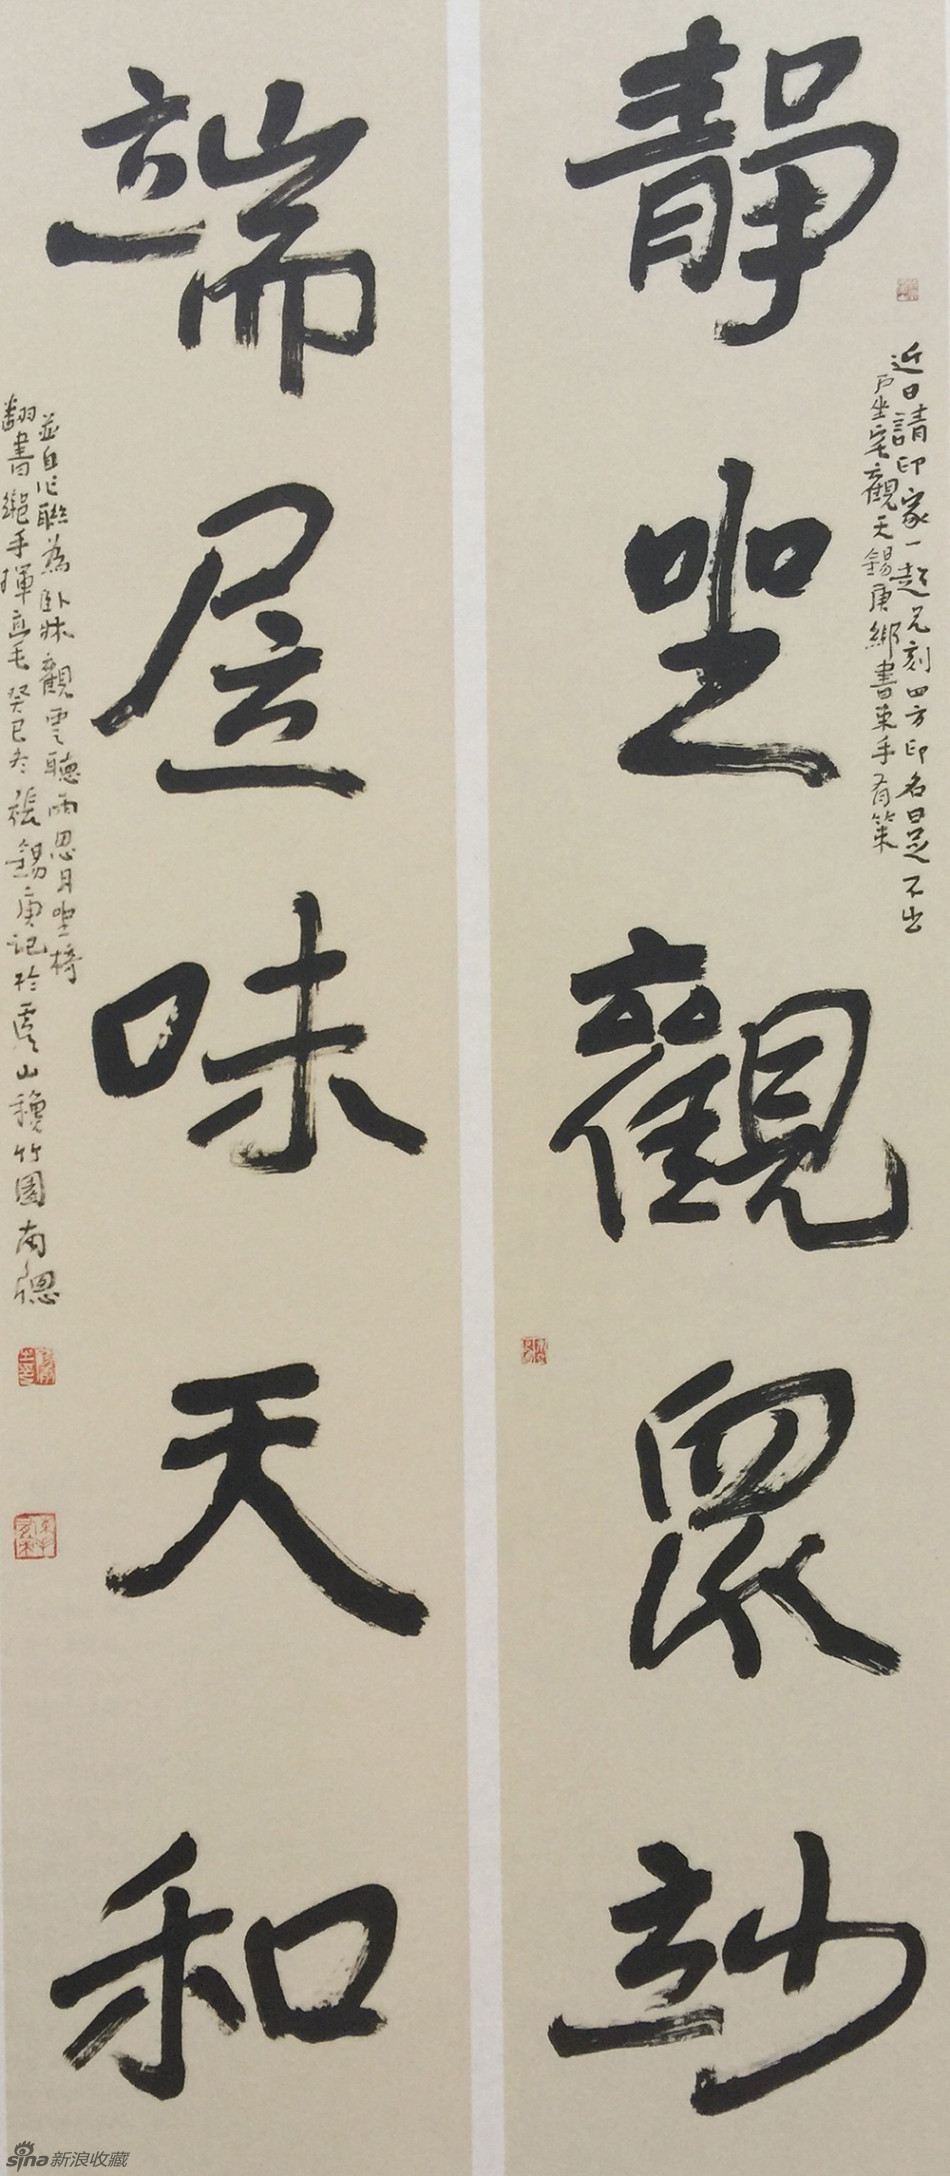 靜坐觀眾竗
近日請印家一超兄刻四方印名曰足不出
戶坐宅觀天錫庚綁書束手有策
端居味天和
並自作聯為臥床觀雲聽雨思月坐椅
翻書繩手揮直毛癸巳冬張錫庚記於虞山稼竹園南窗
sina新浪收藏